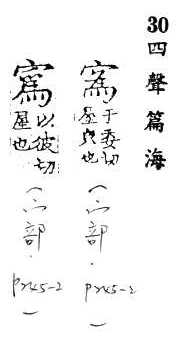 30 四聲篇海
寪 于委切
屋皃也
（宀部．
P245-2）
寪 以彼切
屋也
（宀部．
P245-2）